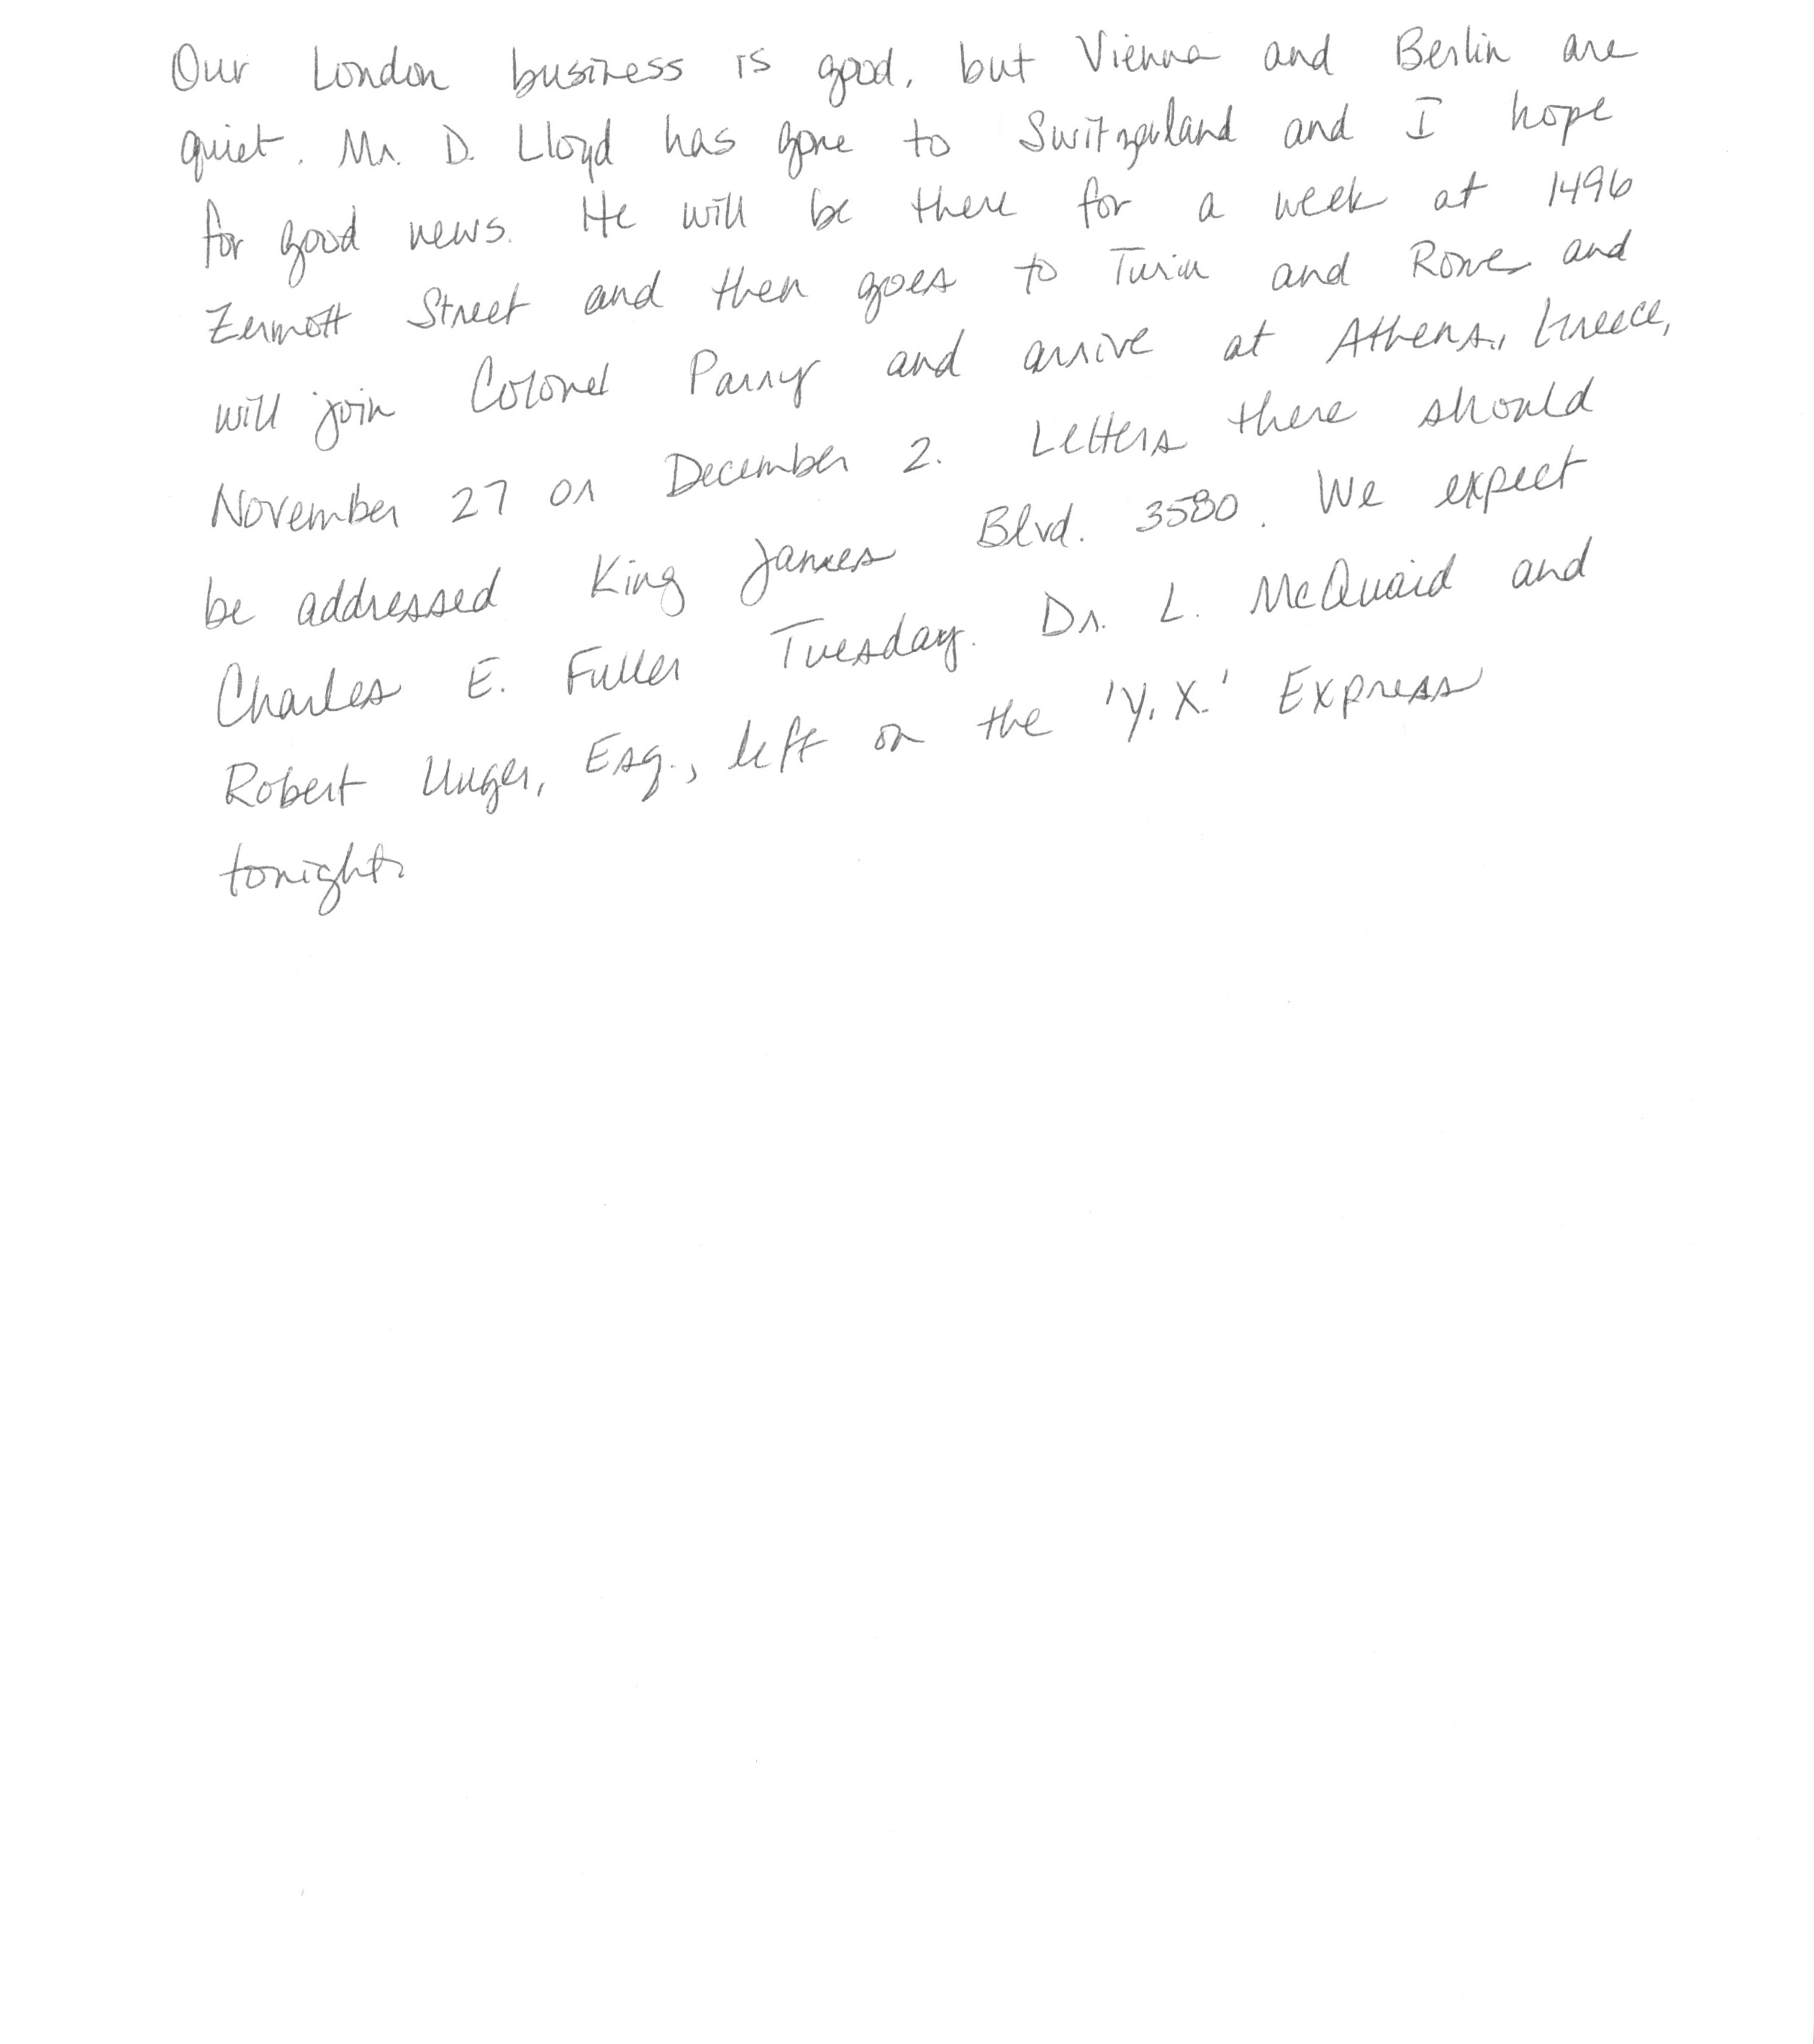 Our London business is good, but Vienna and Berlin are
quiet. Mr. D. Lloyd has gone to Switzerland and I hope
for good news. He will be there for a week at 1496
Zermott Street and then goes to Turin and Rome and
will join Colonel Parry and arrive at Athens, Greece,
November 27 or December 2. Letters there should
be addressed King James Blvd. 3580. We expect
Charles E. Fuller Tuesday. Dr. L. McQuaid and
Robert Unger, Esq., left on the 'Y.X.' Express
tonight.